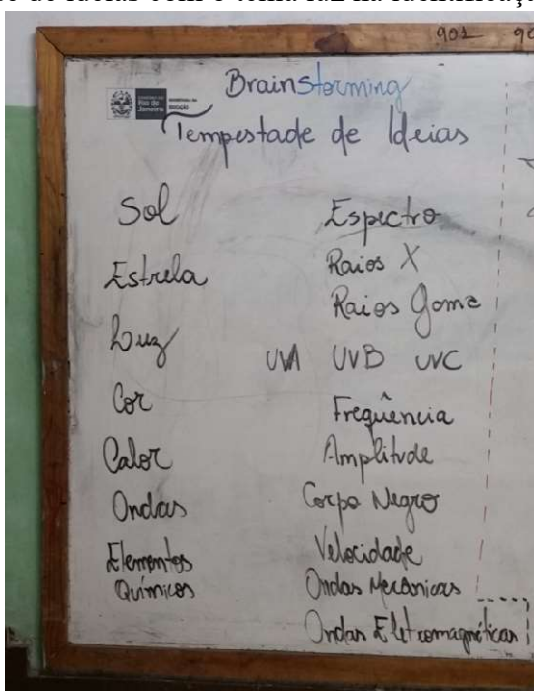 901
Brainstorming
Tempestade de Ideias
Sol
Estrela
Luz
Cor
Calor
Ondas
Elementos
Químicos
Espectro
Raios X
Raios Gama
UVA UVB UVC
Freqüência
Amplitude
Corpo Negro
Velocidade
Ondas Mecânicas
Ondas Eletromagnéticas